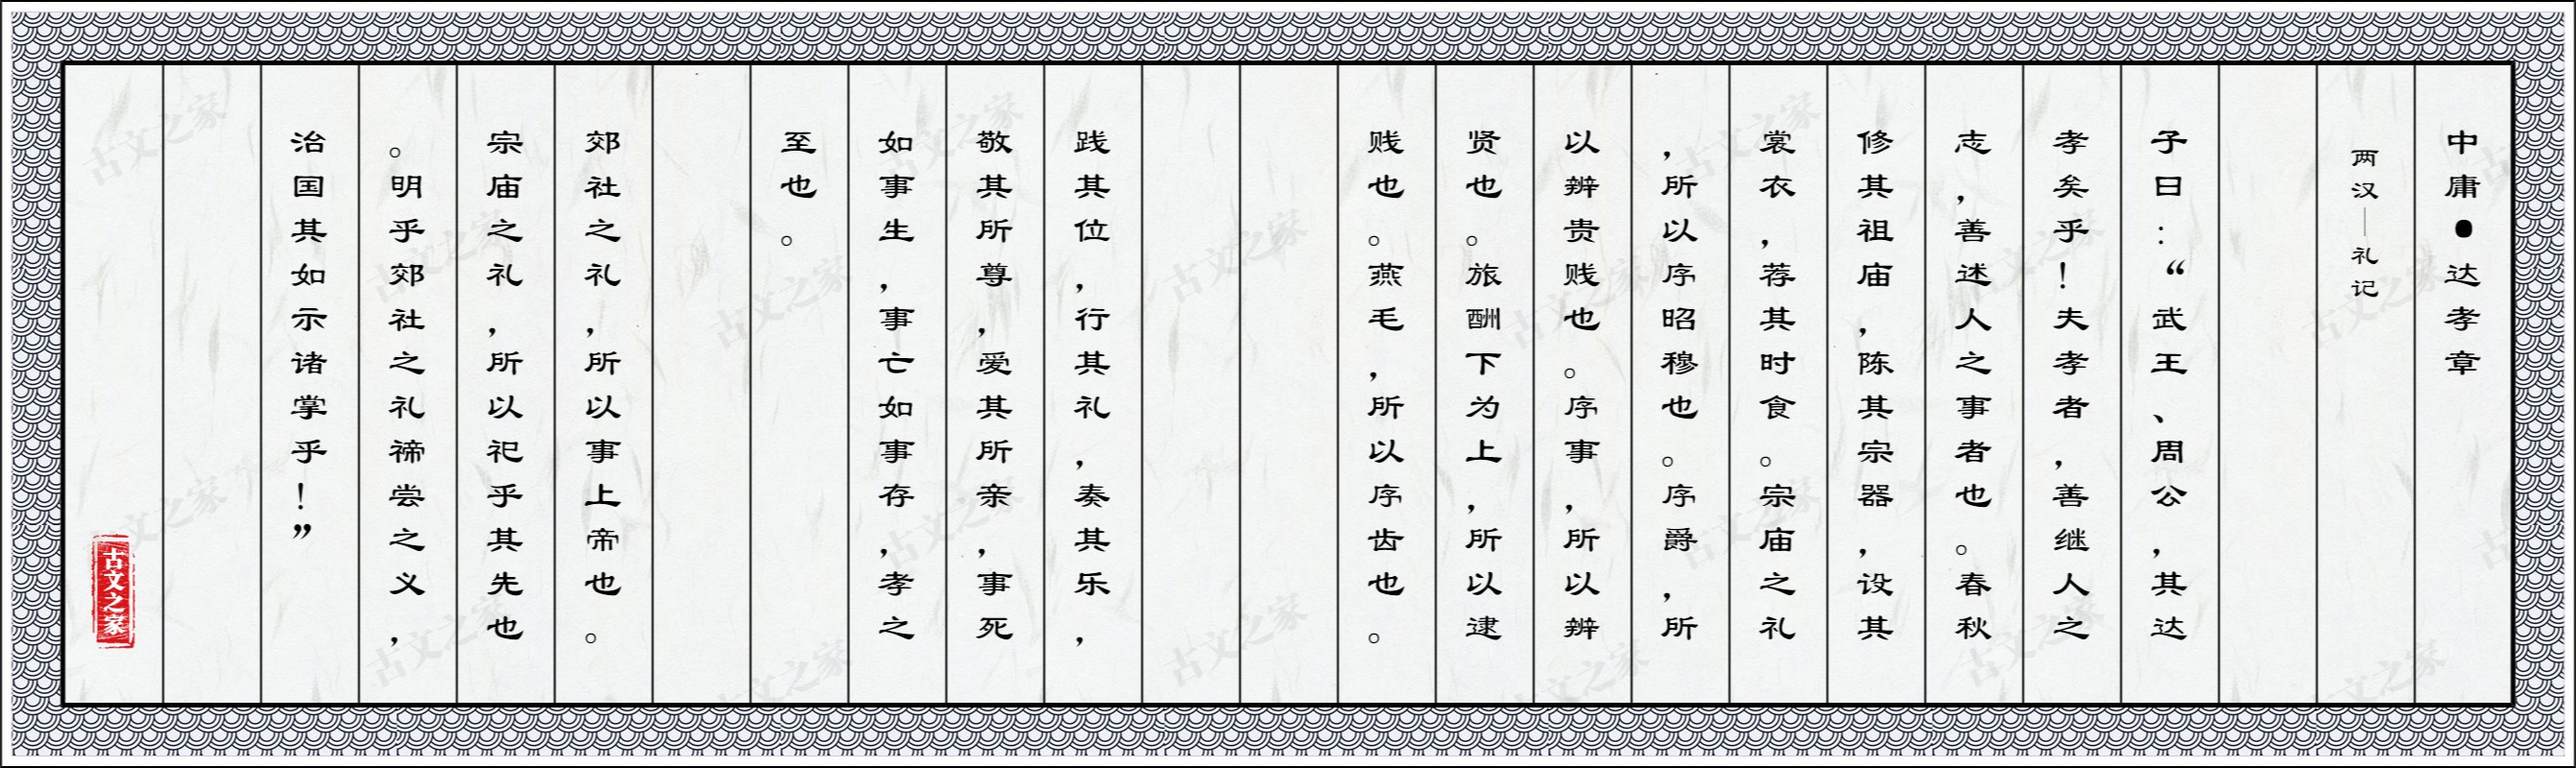 中庸●达孝章
两汉—礼记
子曰：“武王、周公，其达
孝矣乎！夫孝者，善继人之
志，善述人之事者也。春秋
修其祖庙，陈其宗器，设其
裳衣，荐其时食。宗庙之礼
，所以序昭穆也。序爵，所
以辨贵贱也。序事，所以辨
贤也。旅酬下为上，所以逮
贱也。燕毛，所以序齿也。
践其位，行其礼，奏其乐，
敬其所尊，爱其所亲，事死
如事生，事亡如事存，孝之
至也。
郊社之礼，所以事上帝也。
宗庙之礼，所以祀乎其先也
。明乎郊社之礼禘尝之义，
治国其如示诸掌乎！”
古文之家